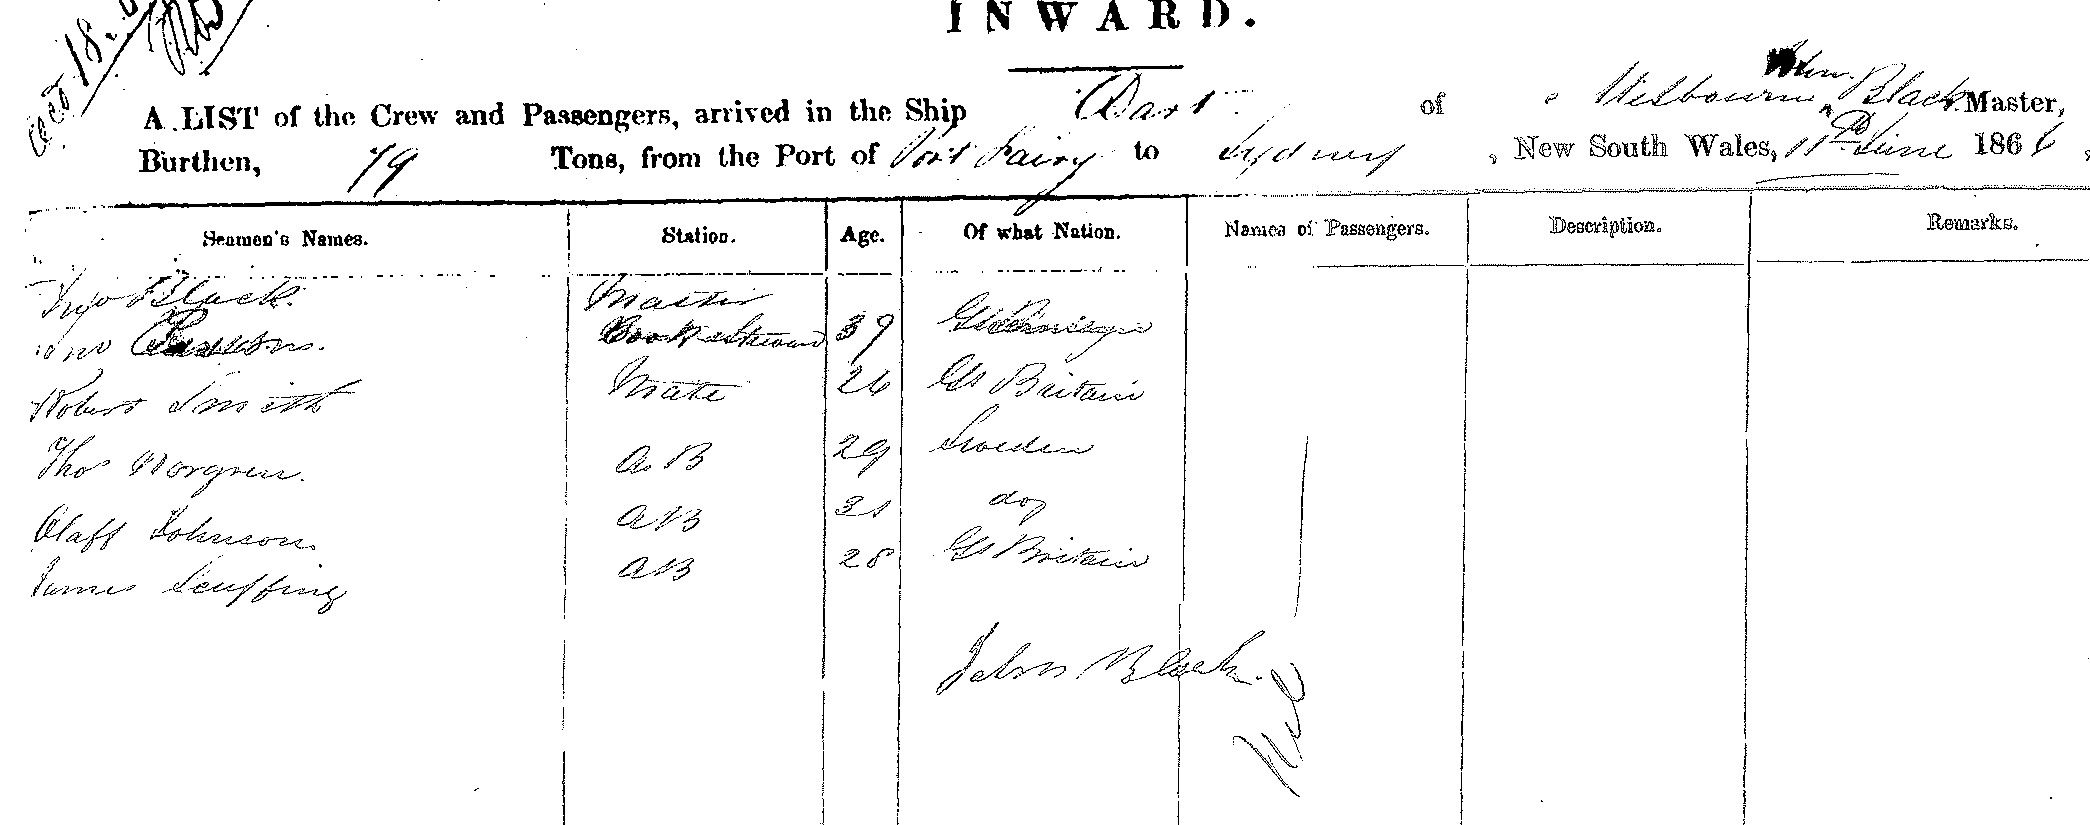 INWARD.
A LIST of the Crew and Passengers, arrived in the Ship Dart of Melbourne John Black Master,
Burthen, 79 Tons, from the Port of Port Fairy to Sydney, New South Wales, 11th June 1866,
Seamen's Names. Station. Age. Of what Nation. Names of Passengers. Description. Remarks.
Black. Master
Jno Cook & Steward 39
Robert Smith Mate 26 Gt Britain
Thos Norgren. A.B 29 Sweden
Olaff Johnson AB 31 do
James Scuffing AB 28 Gt Britain
John Black.
Nil